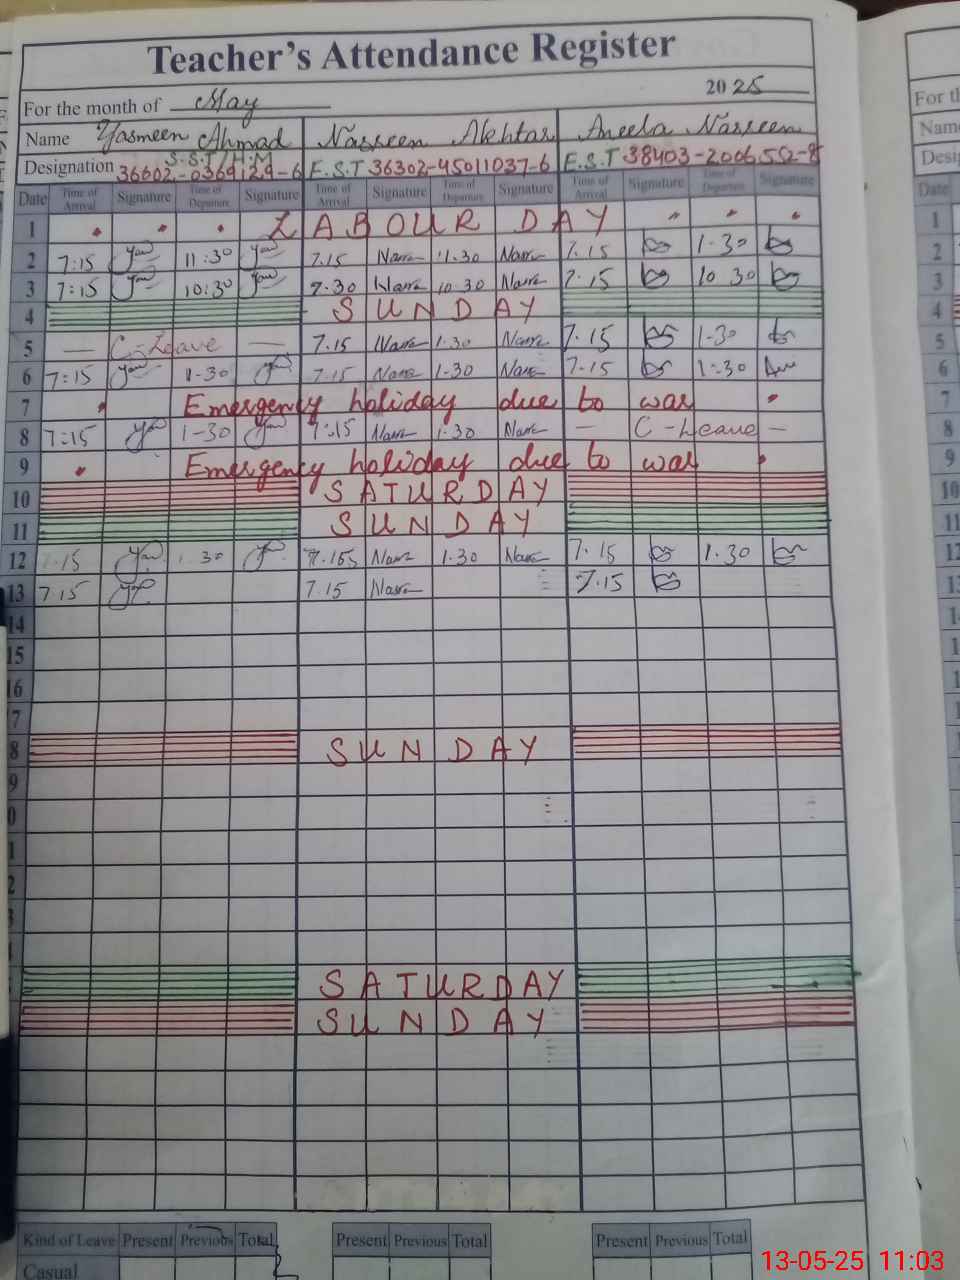 Teacher's Attendance Register
For the month of May 2025
Name Yasmeen Ahmad Nasreen Akhtar Aneela Nasreen
S.S.T/H.M
Designation 36602-0369129-6 E.S.T 36302-45011037-6 E.S.T 38403-2006552-8
Date Time of Arrival Signature Time of Departure Signature Time of Arrival Signature Time of Departure Signature Time of Arrival Signature Time of Departure Signature
1 LABOUR DAY
2 7:15 11:30 7.15 11.30 7.15 1-30
3 7:15 10:30 7.30 10.30 7.15 10 30
4 SUNDAY
5 — C-Leave — 7.15 1.30 7.15 1-30
6 7:15 1-30 7.15 1-30 7-15 1-30
7 Emergency holiday due to war
8 7:15 1-30 7:15 1.30 — C-Leave —
9 Emergency holiday due to war
10 SATURDAY
11 SUNDAY
12 7.15 1.30 7.155 1.30 7.15 1.30
13 7 15 7.15 7.15
14
15
16
7
8 SUNDAY
9
0
1
2
3
SATURDAY
SUNDAY
Kind of Leave Present Previous Total Present Previous Total Present Previous Total
Casual
For th
Name
Desig
Date
1
2
3
4
5
6
7
8
9
10
11
12
13
13-05-25 11:03